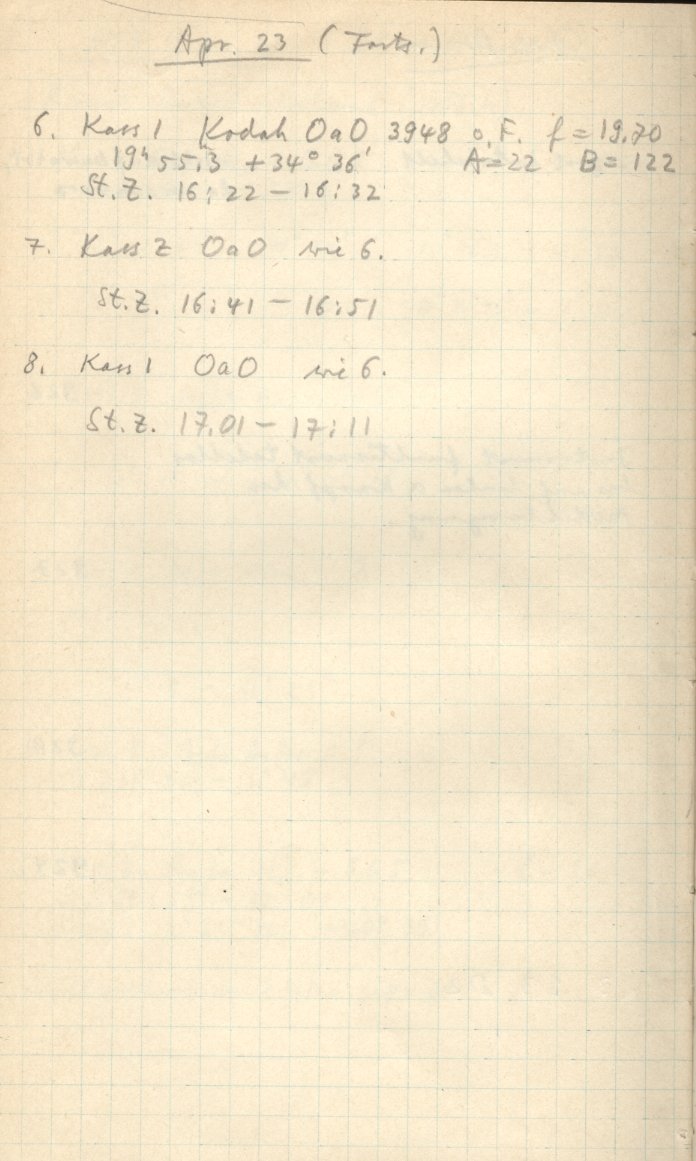 Apr. 23 (Forts.)
6. Kass 1 Kodak OaO 3948 o.F. f = 19.70
19h 55.3 +34° 36' A=22 B=122
St.Z. 16:22 – 16:32
7. Kass 2 OaO wie 6.
St.Z. 16:41 – 16:51
8. Kass 1 OaO wie 6.
St.Z. 17.01 – 17:11